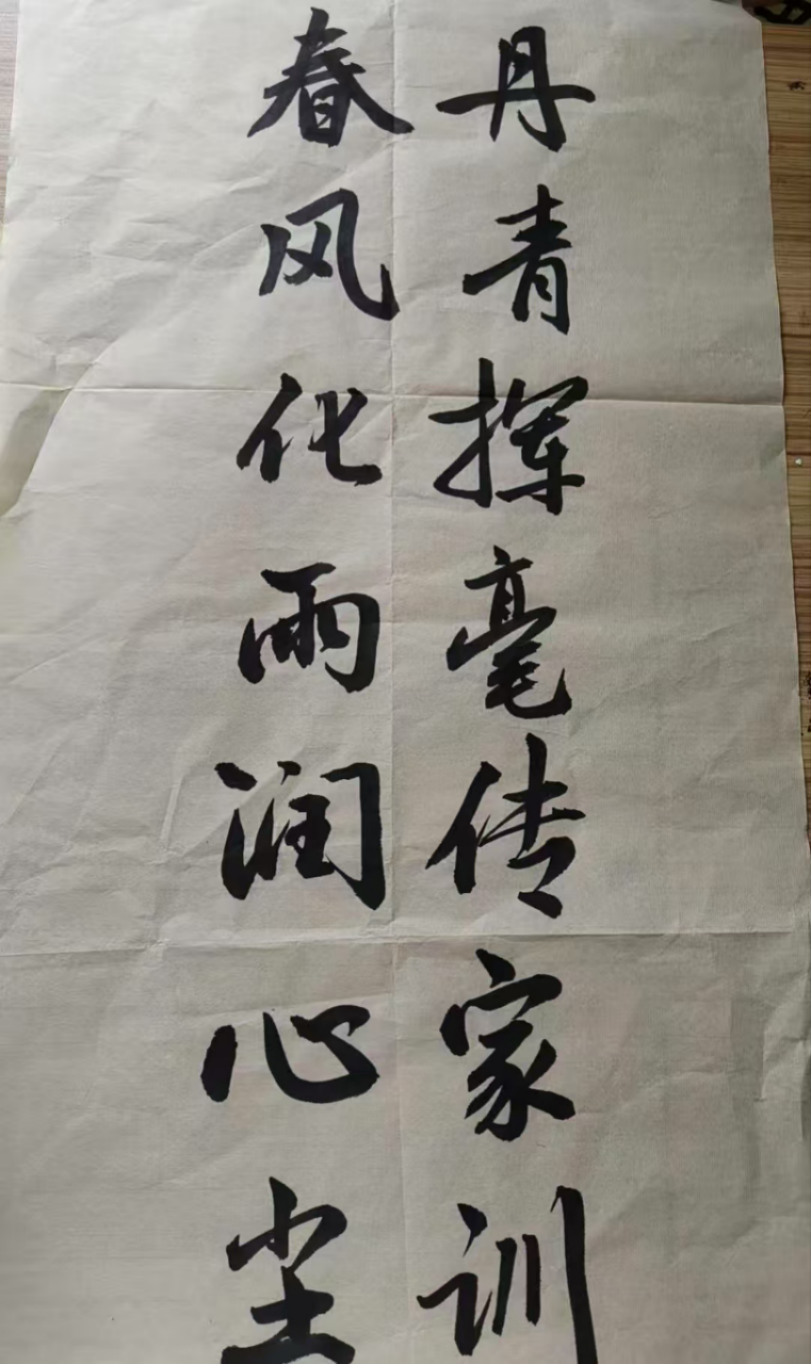 丹青挥毫传家训
春风化雨润心尘